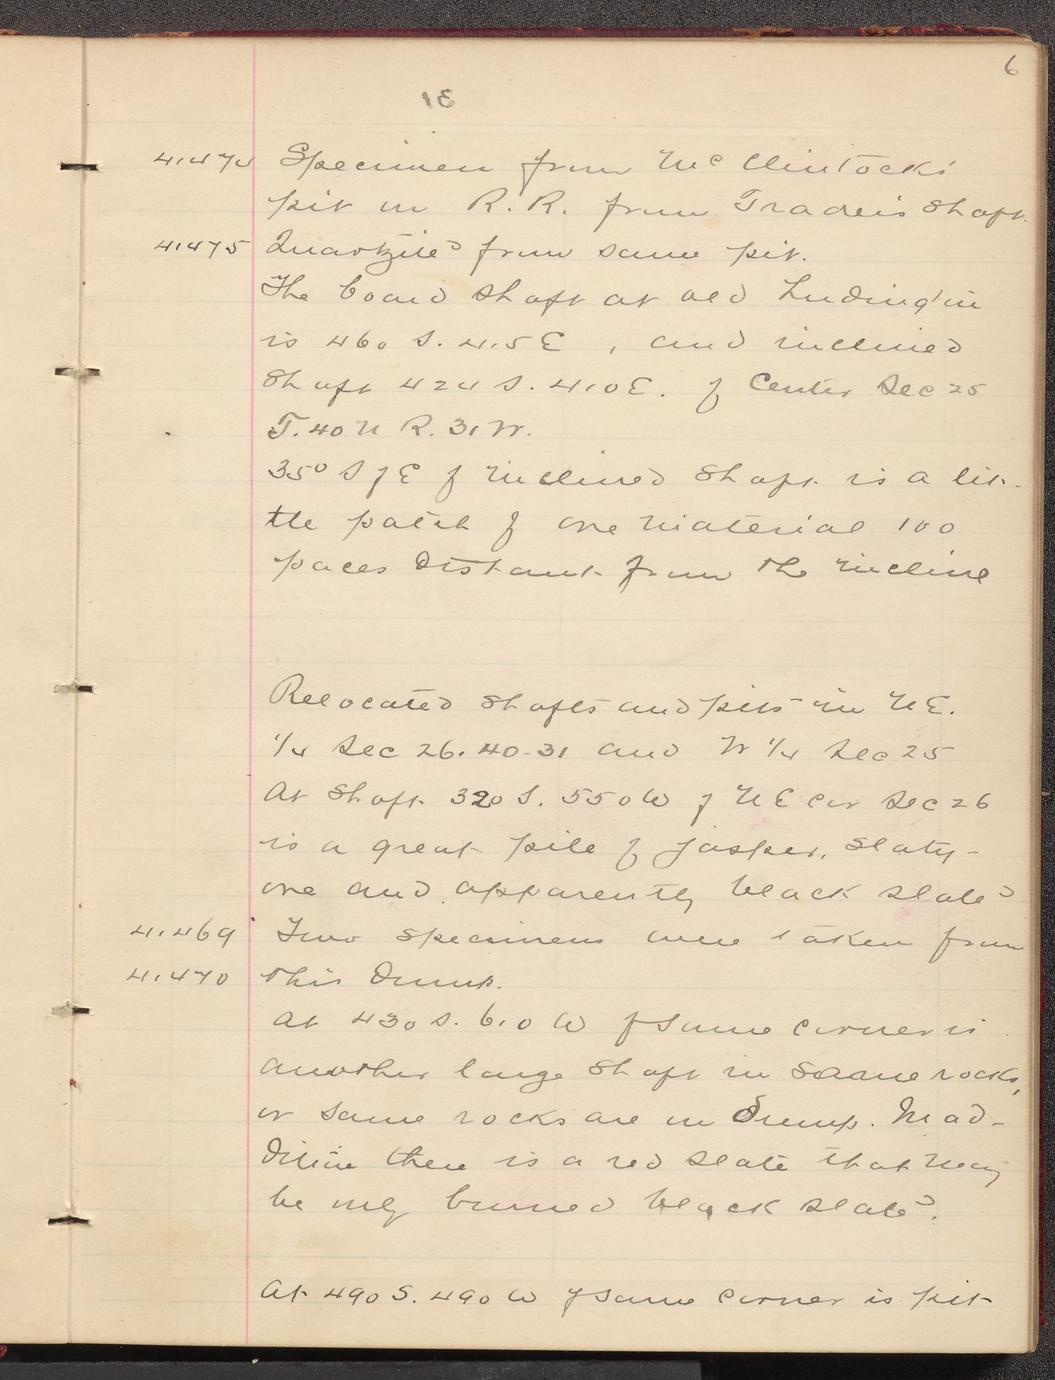 6
31
41474 Specimen from McClintocks'
pit in R.R. from Traders Shaft.
41475 Quartzite from same pit.
The board shaft at old Ludington
is 460 S. 415 E , and inclined
Shaft 424 S. 410 E. of Center Sec 25
T. 40 N R. 31 W.
35° S of E of inclined Shaft is a lit-
tle patch of ore material 100
paces distant from the incline
Relocated Shafts and pits in N.E.
1/4 Sec 26. 40-31 and W 1/4 Sec 25
At Shaft 320 S. 550 W of N E cor Sec 26
is a great pile of jasper, slaty-
ore and apparently black slate
41469 Two specimens were taken from
41470 this dump.
At 430 S. 610 W of same corner is
another large Shaft in same rocks,
or same rocks are in dump. In ad-
dition there is a red slate that may
be only burned black slate.
At 490 S. 490 W of same corner is pit